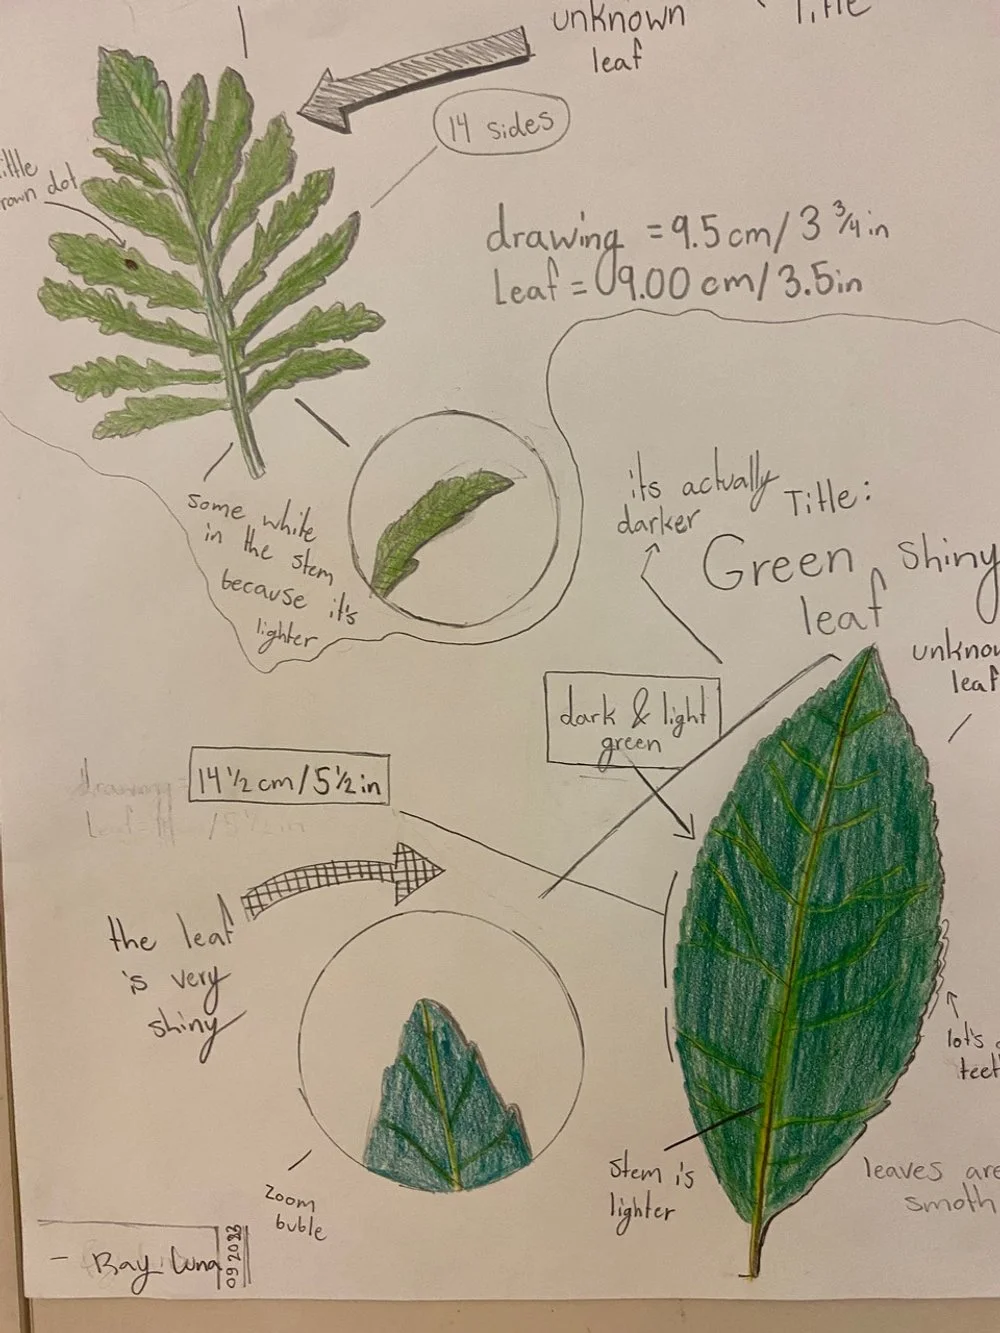 unknown
leaf
Title
14 sides
little
brown dot
drawing = 9.5 cm/ 3 3/4 in
Leaf = 9.00 cm/ 3.5in
some white
in the stem
because it's
lighter
its actually
darker
Title:
Green shiny
leaf
unknow
leaf
dark & light
green
14 1/2 cm/5 1/2 in
drawing
Leaf= /5 1/2 in
the leaf
is very
shiny
lot's
teet
stem is
lighter
leaves are
smoth
Zoom
buble
- Ray Luna
09 2023